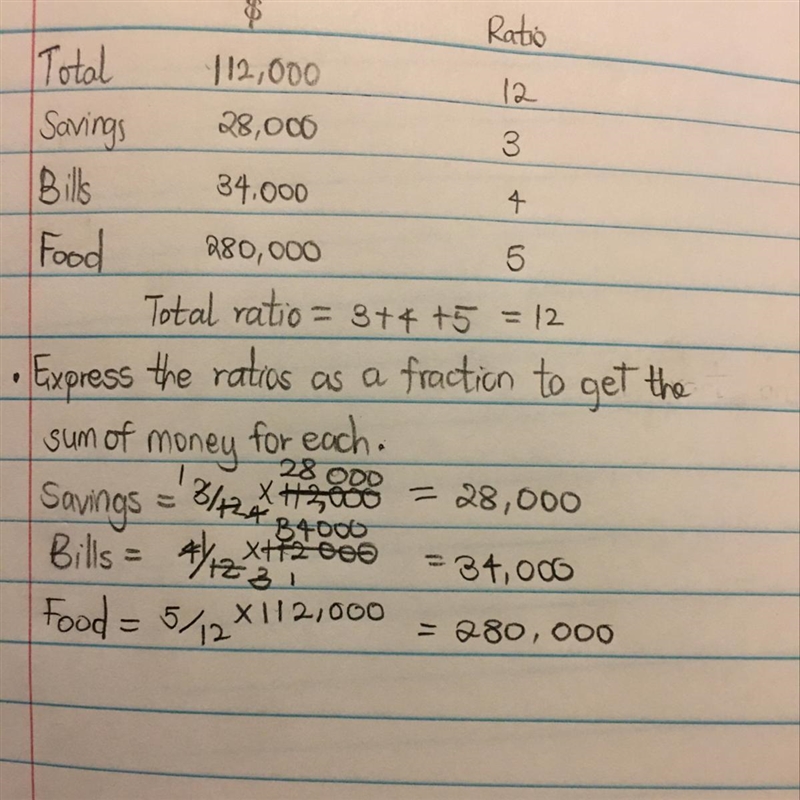 $ Ratio
Total 112,000 12
Savings 28,000 3
Bills 34.000 4
Food 280,000 5
Total ratio = 3+4+5 = 12
• Express the ratios as a fraction to get the
sum of money for each.
28 000
Savings = 1 3/12 4 × 112,000 = 28,000
34000
Bills = 4 1/12 × 112 000 = 34,000
3 1
Food = 5/12 × 112,000 = 280,000